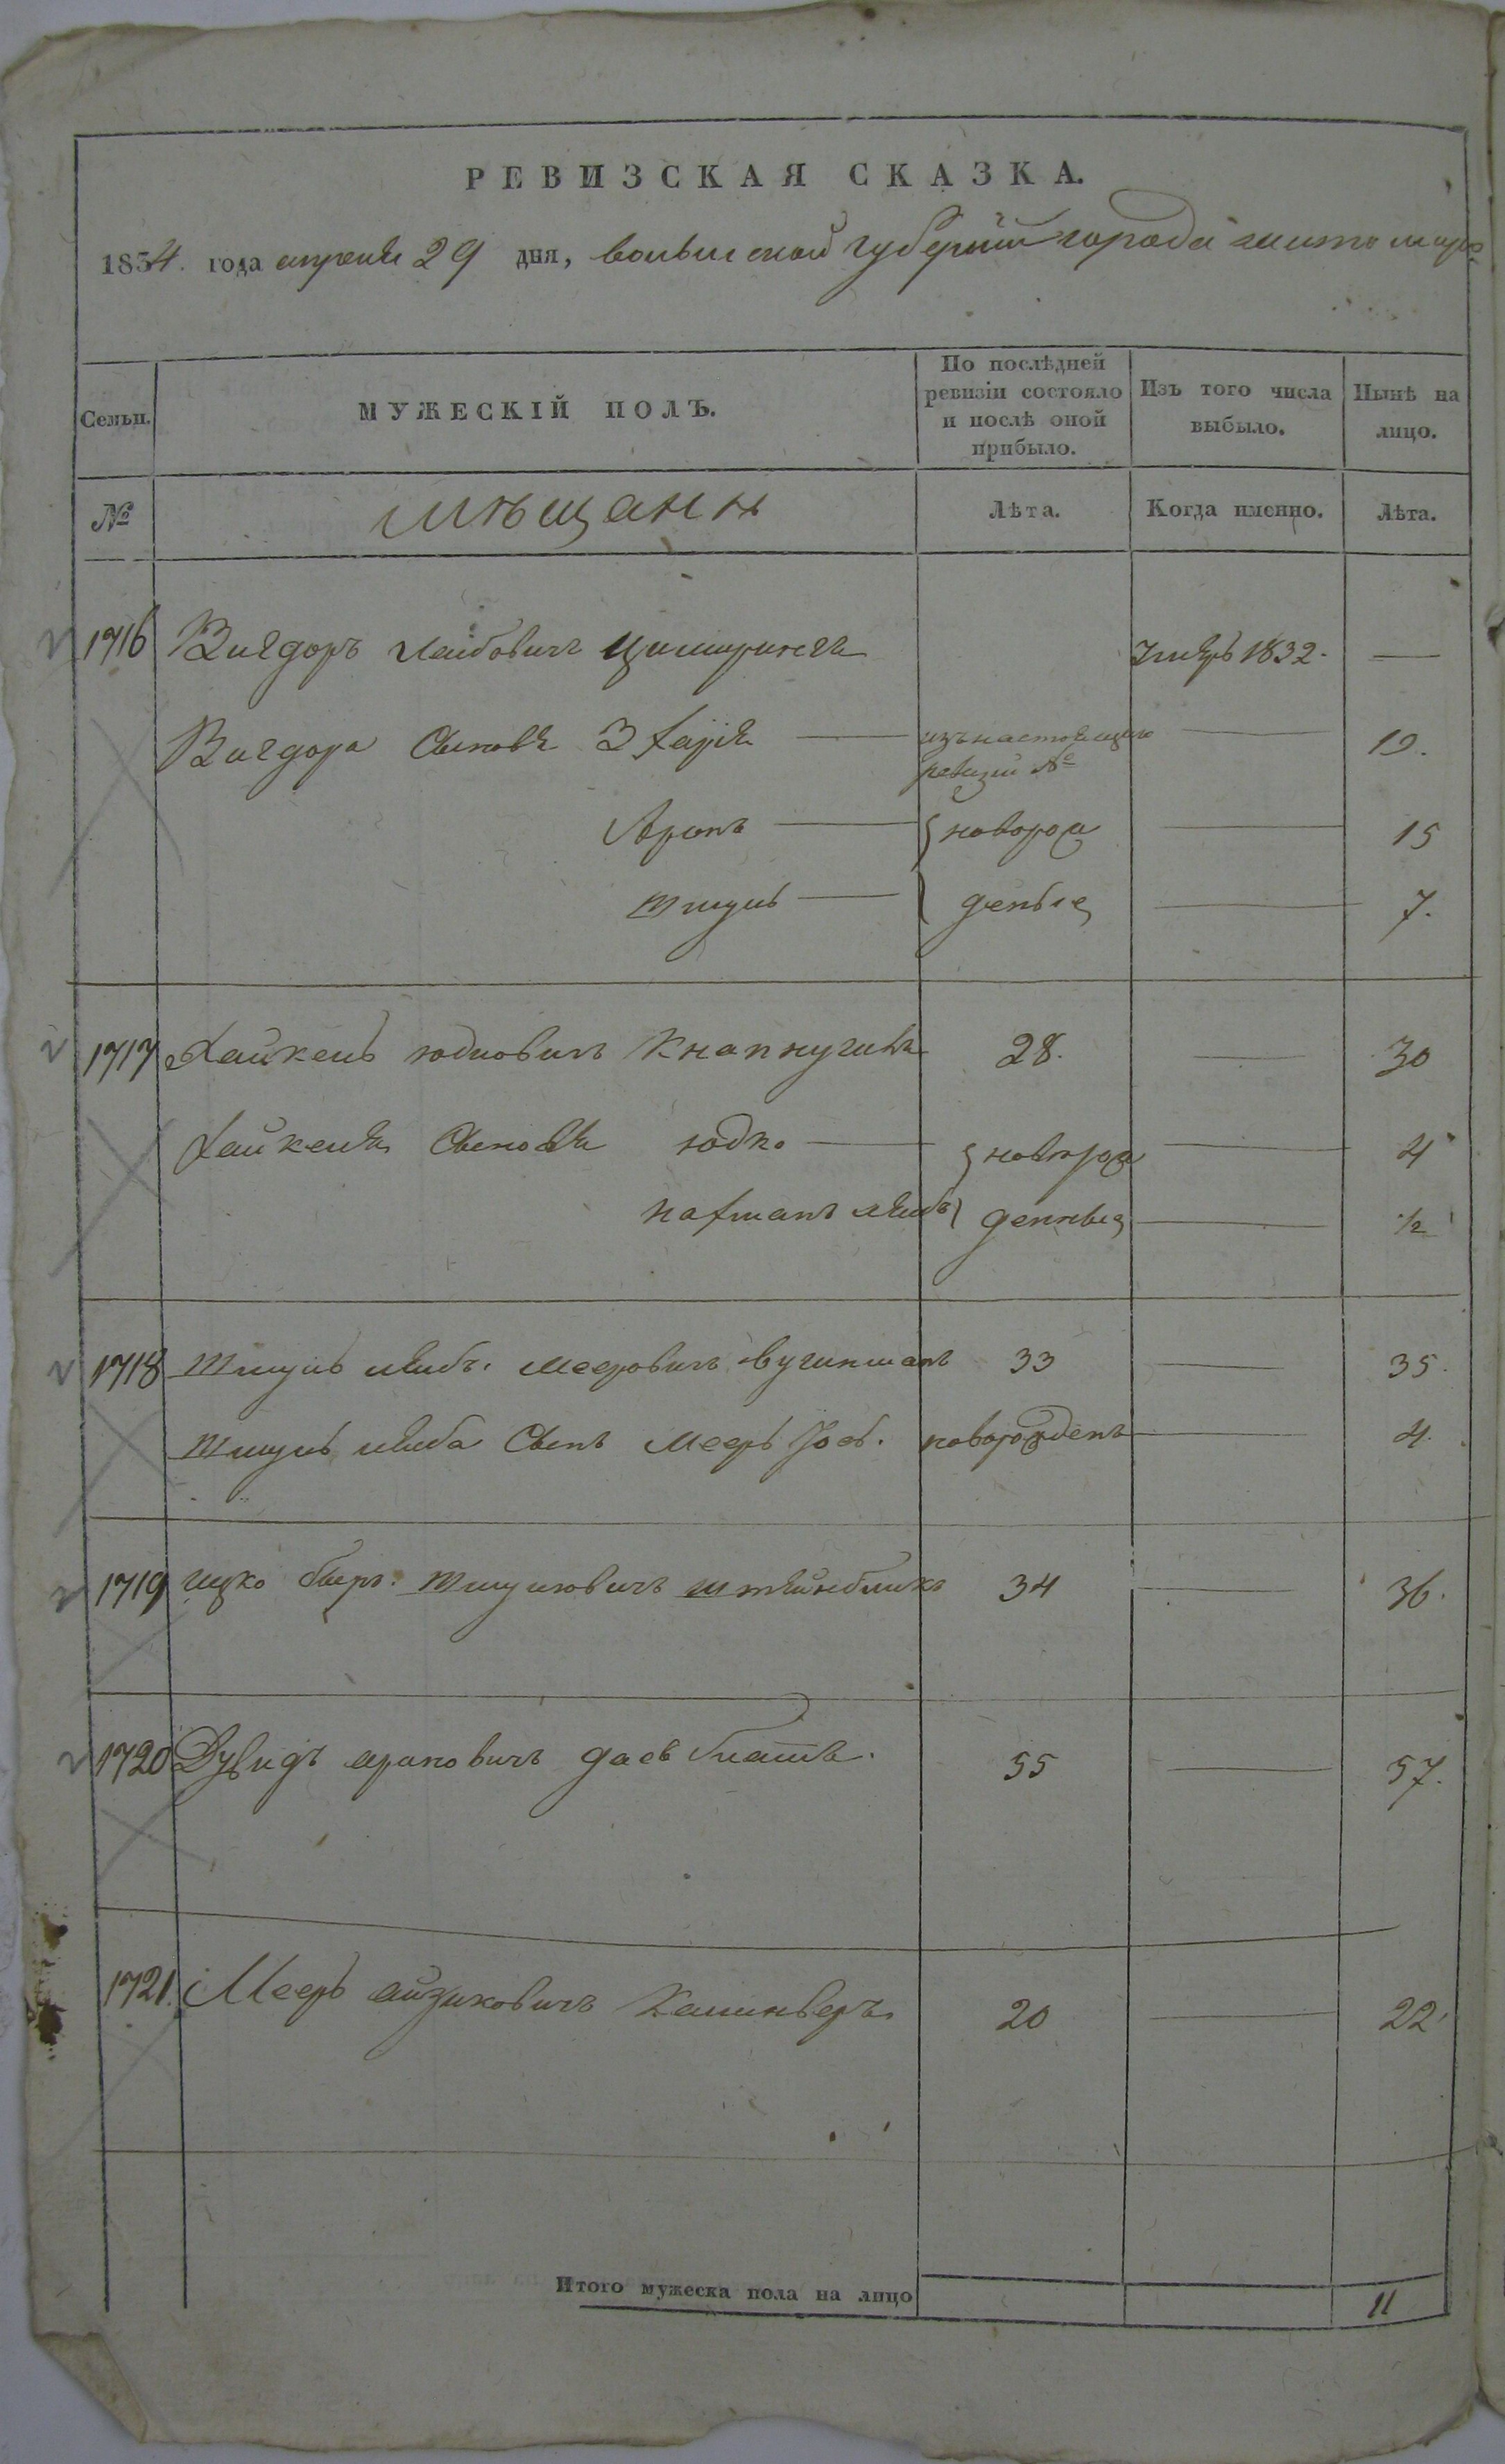 РЕВИЗСКАЯ СКАЗКА.
1834. года апреля 29 дня, волынской губернии города житомира
Семьи. МУЖЕСКІЙ ПОЛЪ. По послѣдней ревизіи состояло и послѣ оной прибыло. Изъ того числа выбыло. Нынѣ на лицо.
№ мѣщанн Лѣта. Когда именно. Лѣта.
1716 Вигдоръ лейбовичъ 1832. —
Вигдора Сыновя З изънастоящей ревизии № — 19.
Аронъ — новорож — 15
Шмуль — деные — 7.
1717 Хайкель юдковичъ 28. — 30
Хайкеля Сыновя юдко — новорож — 4
нахманъ лейбъ денные — 1/2
1718 Шмуль лейбъ. мееровичъ 33 — 35.
Шмуль лейба Сынъ Мееръ новорожденъ — 4.
1719 ицко беръ. Шмулювичъ штейнбликъ 34 — 36.
1720 Дувидъ ароновичъ 55 — 57.
1721. Мееръ айзиковичъ 20 — 22
Итого мужеска пола на лицо 11